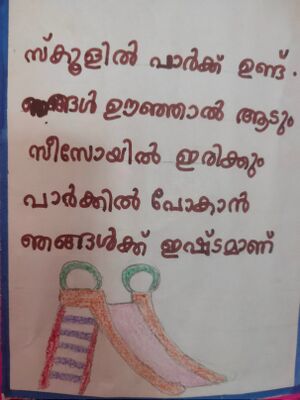 സ്കൂളിൽ പാർക്ക് ഉണ്ട്.
ഞങ്ങൾ ഊഞ്ഞാൽ ആടും
സീസോയിൽ ഇരിക്കും
പാർക്കിൽ പോകാൻ
ഞങ്ങൾക്ക് ഇഷ്ടമാണ്